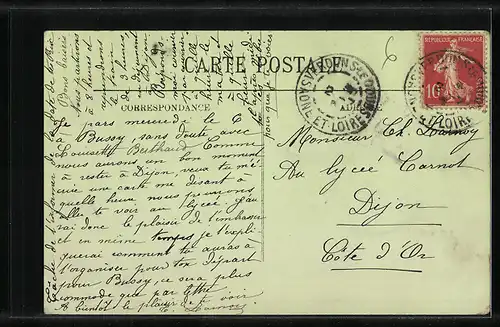 CARTE POSTALE
CORRESPONDANCE
ADRESSE
REPUBLIQUE FRANÇAISE
10
ET-LOIRE
Je pars mercredi le 6
à Bussy, sans doute avec
Louisette Berthaud Comme
nous aurons un bon moment
à rester à Dijon, veux tu m'é
crire une carte me disant à
quelle heure nous pouvons
aller te voir au lycée, j'au
rai donc le plaisir de t'embrasser
et en même temps je t'expli
querai comment tu auras à
t'organiser pour ton départ
pour Bussy, ce sera plus
commode que par lettre
A bientôt le plaisir de te voir
Monsieur Ch.
Au lycée Carnot
Dijon
Côte d'Or
Bons baisers
Nous partirons
à 2 heures et
de 3 heures
Réponds